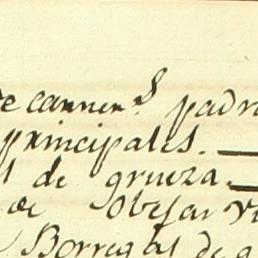 de carnen.s padro
principales.
de grueza.
de Obejas V
Borregas de a